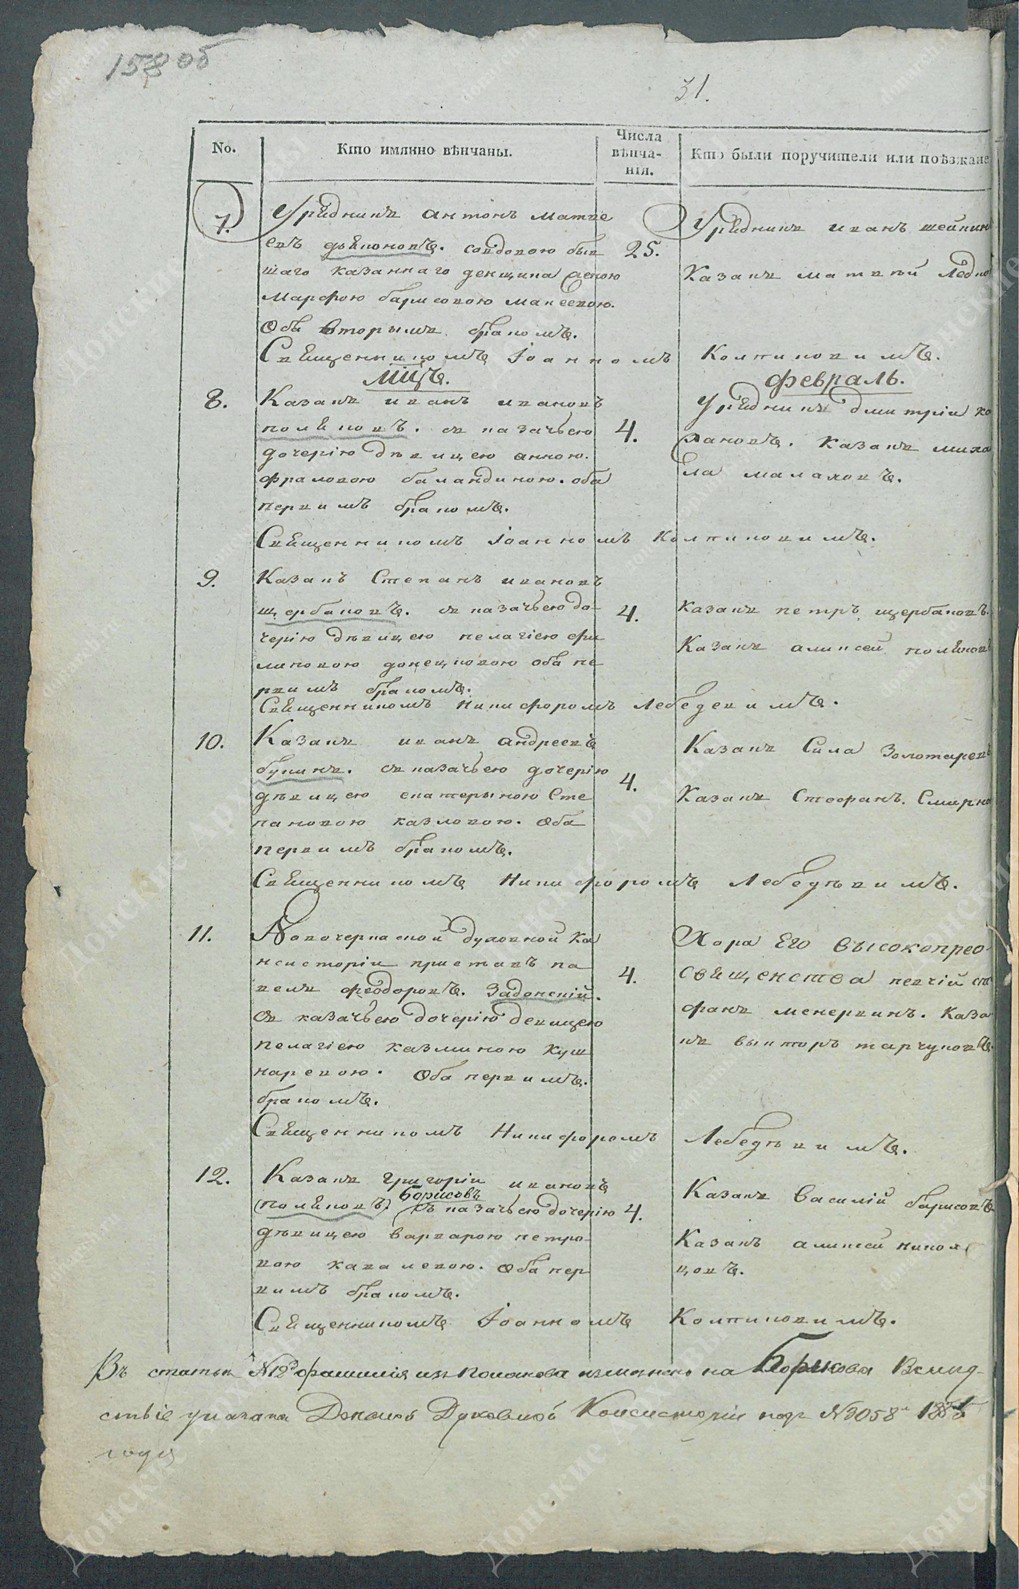 158 об
31.
No.
Кто имянно вѣнчаны.
Числа вѣнча-
нія.
Кто были поручители или поѣзжане
7.
Урядникъ антонъ матве
евъ дьяконовъ. совдовою быв
шаго казачнаго денщика
Марфою барисовою макѣевою.
Оба вторымъ бракомъ.
25.
Урядникъ иванъ шейкин
Казакъ матвѣй
Священникомъ Іоанномъ Колпиковимъ.
Мцъ. февраль.
8.
Казакъ иванъ ивановъ
поляковъ. съ казачьею
дочерію дѣвицею анною.
фраловою баландиною. оба
первимъ бракомъ.
4.
Урядникъ дмитрій ка
хановъ. казакъ миха
ела малаховъ.
Священникомъ Іоанномъ Колпиковимъ.
9.
Казакъ Степанъ ивановъ
щербаковъ. съ казачьею до-
черію дѣвицею пелагіею фи
липовою донецковою оба пе
рвимъ бракомъ.
4.
Казакъ петръ щербаковъ.
Казакъ аликсей поляковъ
Священникомъ Никифоромъ Лебедевимъ.
10.
Казакъ иванъ андреевъ
букинъ. съ казачьею дочерію
дѣвицею екатерыною Сте
пановою казловою. Оба
первимъ бракомъ.
4.
Казакъ Сила Золотаревъ
Казакъ Стефанъ. Смирно
Священникомъ Никифоромъ Лебедѣвимъ.
11.
Новочеркаской духовной Ка
нсисторіи приставъ па
велъ феодоровъ. Задонскій.
съ казачьею дочерію девицею
пелагіею казминою куш
наревою. Оба первимъ.
бракомъ.
4.
Хора Его Высокопрео
священства певчій сте
фанъ менеркинъ. Каза
къ выкторъ тарчуковъ.
Священникомъ Никифоромъ Лебедѣвимъ.
12.
Казакъ григорій ивановъ
Борисовъ
(поляковъ) съ казачьею дочерію
дѣвицею варварою петро-
вою кавалевою. Оба пер
вимъ бракомъ.
4.
Казакъ Василій барисовъ
Казакъ аликсей никола
цовъ.
Священникомъ Іоанномъ Колпиковимъ.
Въ статьи №12й фамилія изъ Полякова измѣнено на Борисова Вслид-
ствіе указа Донской Духовной Консисторіи подъ №3058
года